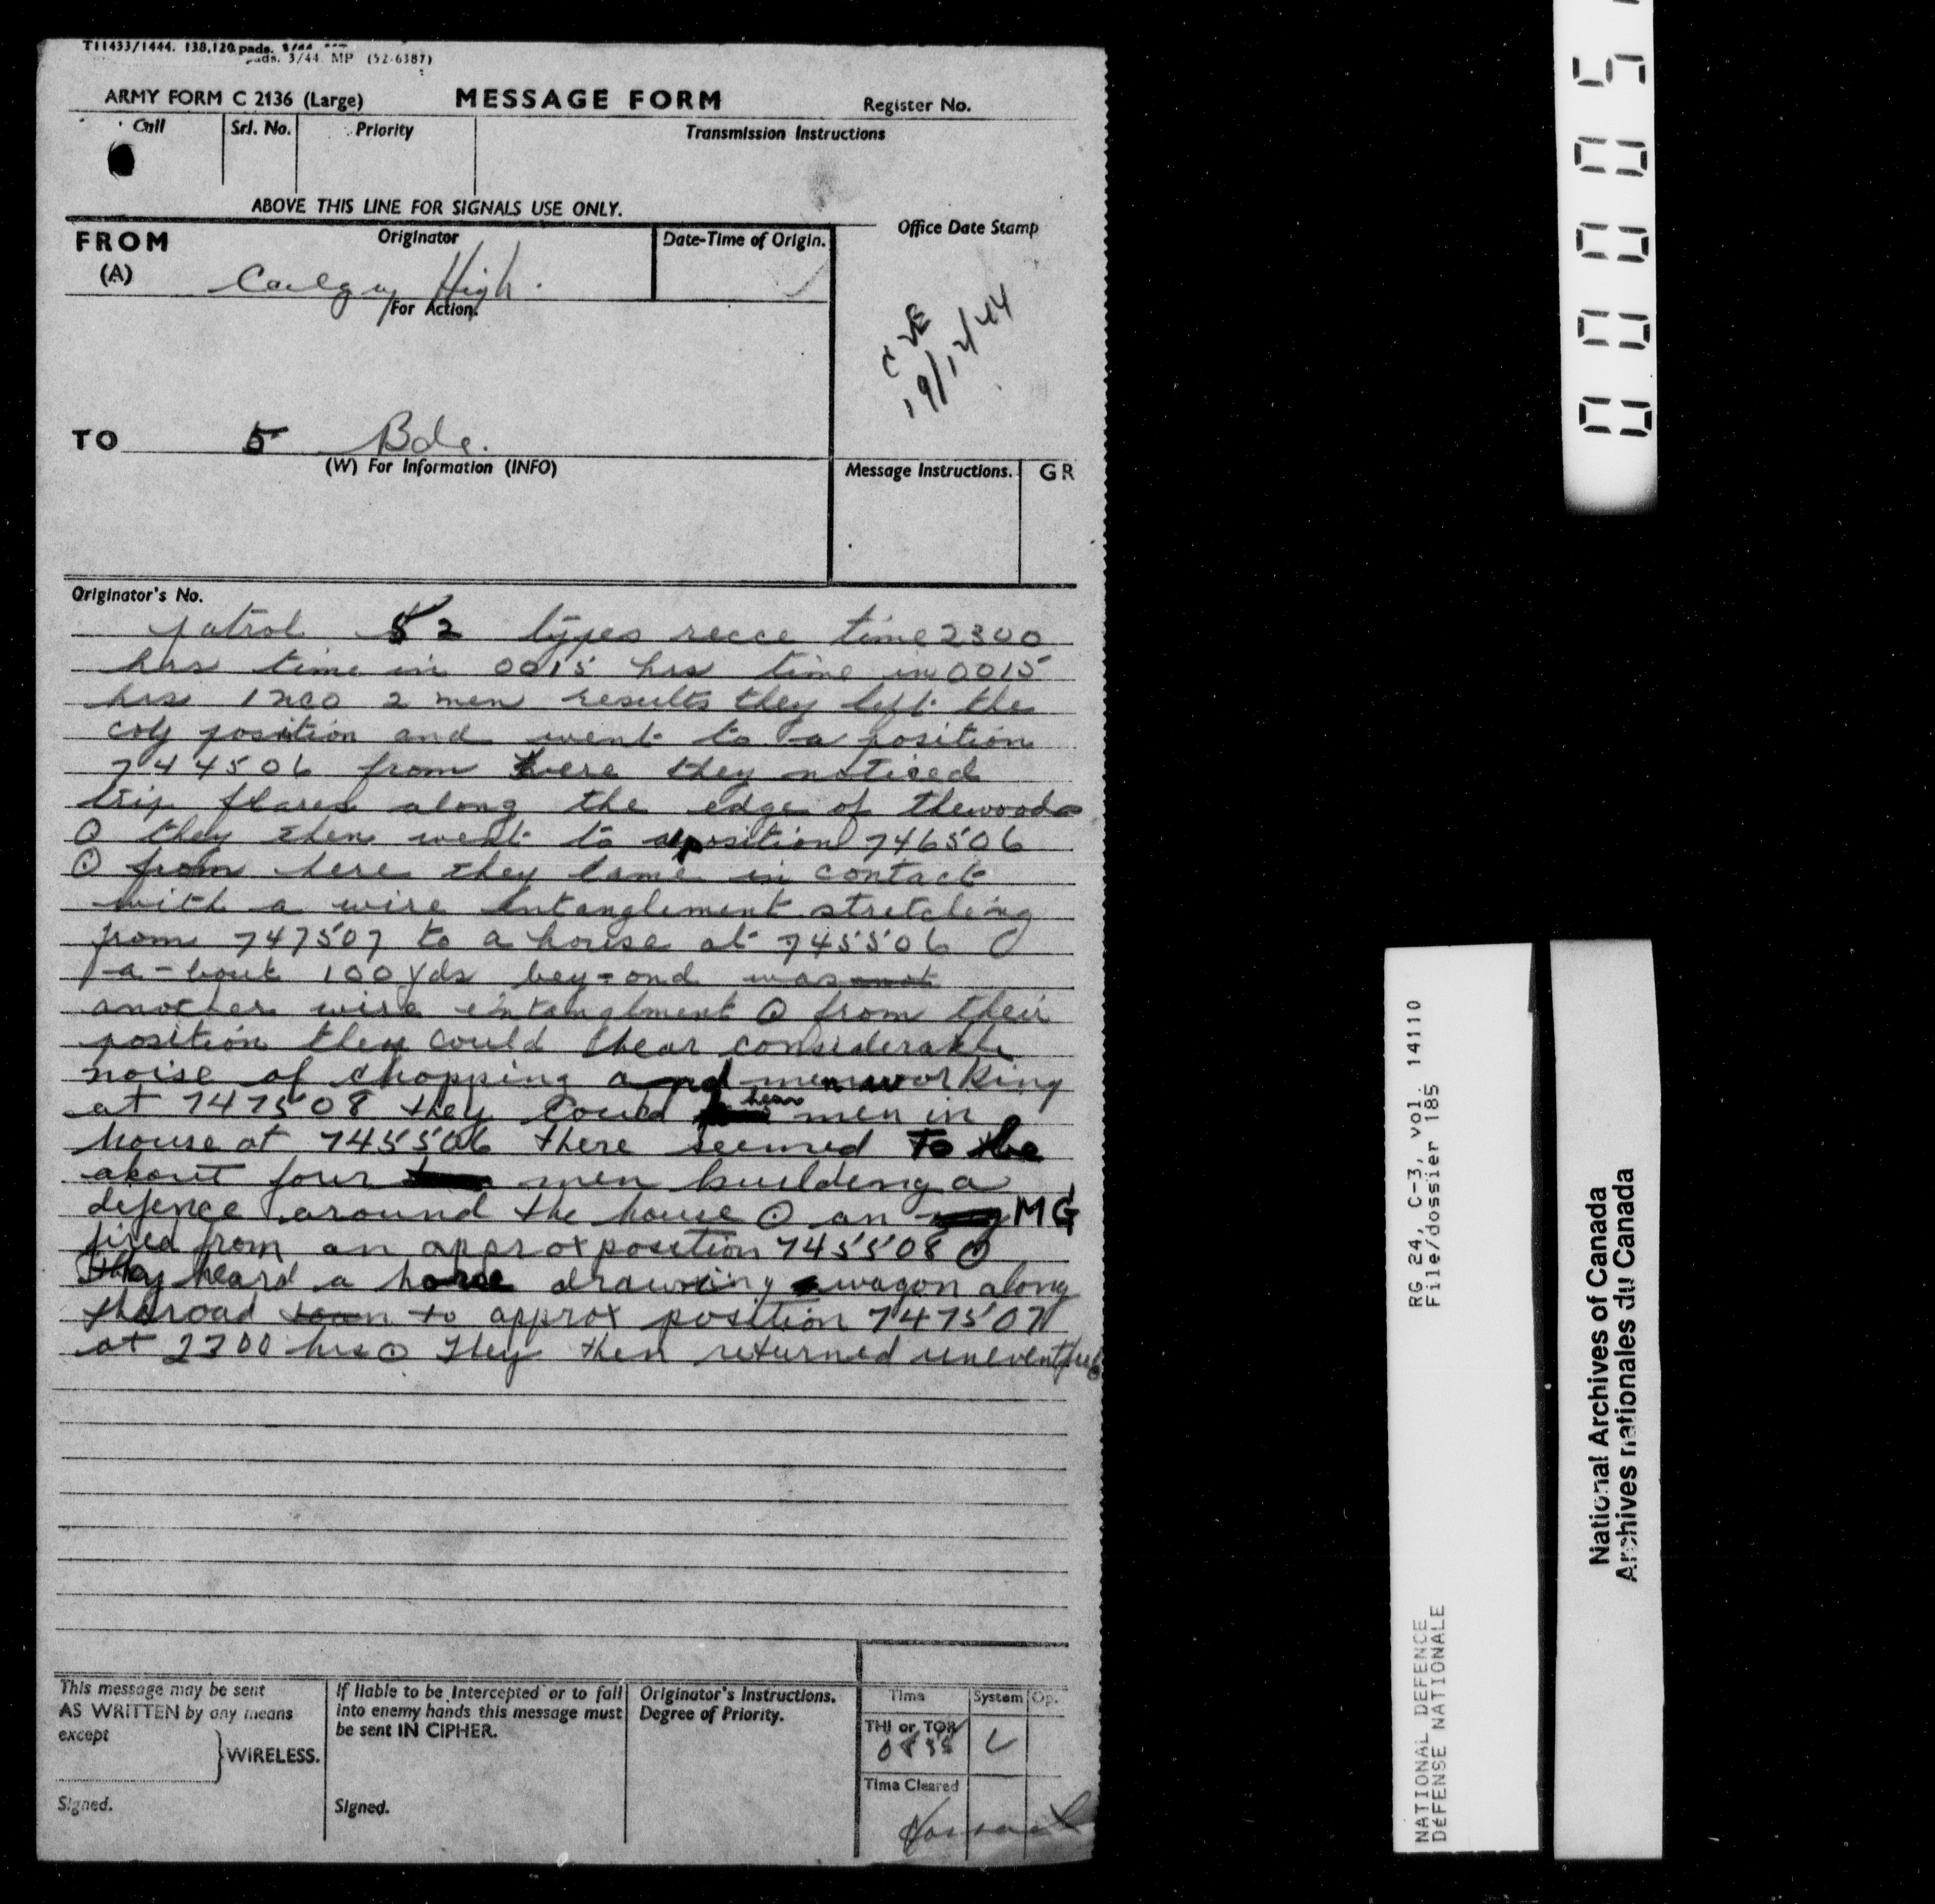 T11433/1444. 138,120 pads.
pads. 3/44. MP (52-6387)
ARMY FORM C 2136 (Large) MESSAGE FORM Register No.
Call Srl. No. Priority Transmission Instructions
ABOVE THIS LINE FOR SIGNALS USE ONLY.
FROM Originator Date-Time of Origin. Office Date Stamp
(A) Calgary High.
For Action.
19/12/44
TO 5 Bde.
(W) For Information (INFO) Message Instructions. GR
Originator's No.
patrol 2 types recce time 2300
hrs time in 0015 hrs time in 0015
hrs 1 nco 2 men results they left the
coy position and went to a position
744506 from here they noticed
trip flares along the edge of the woods
O they then went to a position 746506
O from here they came in contact
with a wire entanglement stretching
from 747507 to a house at 745506 O
a-bout 100 yds bey-ond was
another wire entanglment O from their
position they could hear considerable
noise of chopping and men working
at 747508 they could hear men in
house at 745506 there seemed to be
about four men building a
defence around the house O an MG
fired from an approx position 745508 O
they heard a horse drawing wagon along
the road to approx position 747507
at 2300 hrs O They then returned uneventful
This message may be sent
AS WRITTEN by any means
except
WIRELESS.
Signed.
If liable to be intercepted or to fall
into enemy hands this message must
be sent IN CIPHER.
Signed.
Originator's Instructions.
Degree of Priority.
Time System Op.
THI or TOR
0835
Time Cleared
00005
RG 24, C-3, vol. 14110
File/dossier 185
NATIONAL DEFENCE
DÉFENSE NATIONALE
National Archives of Canada
Archives nationales du Canada